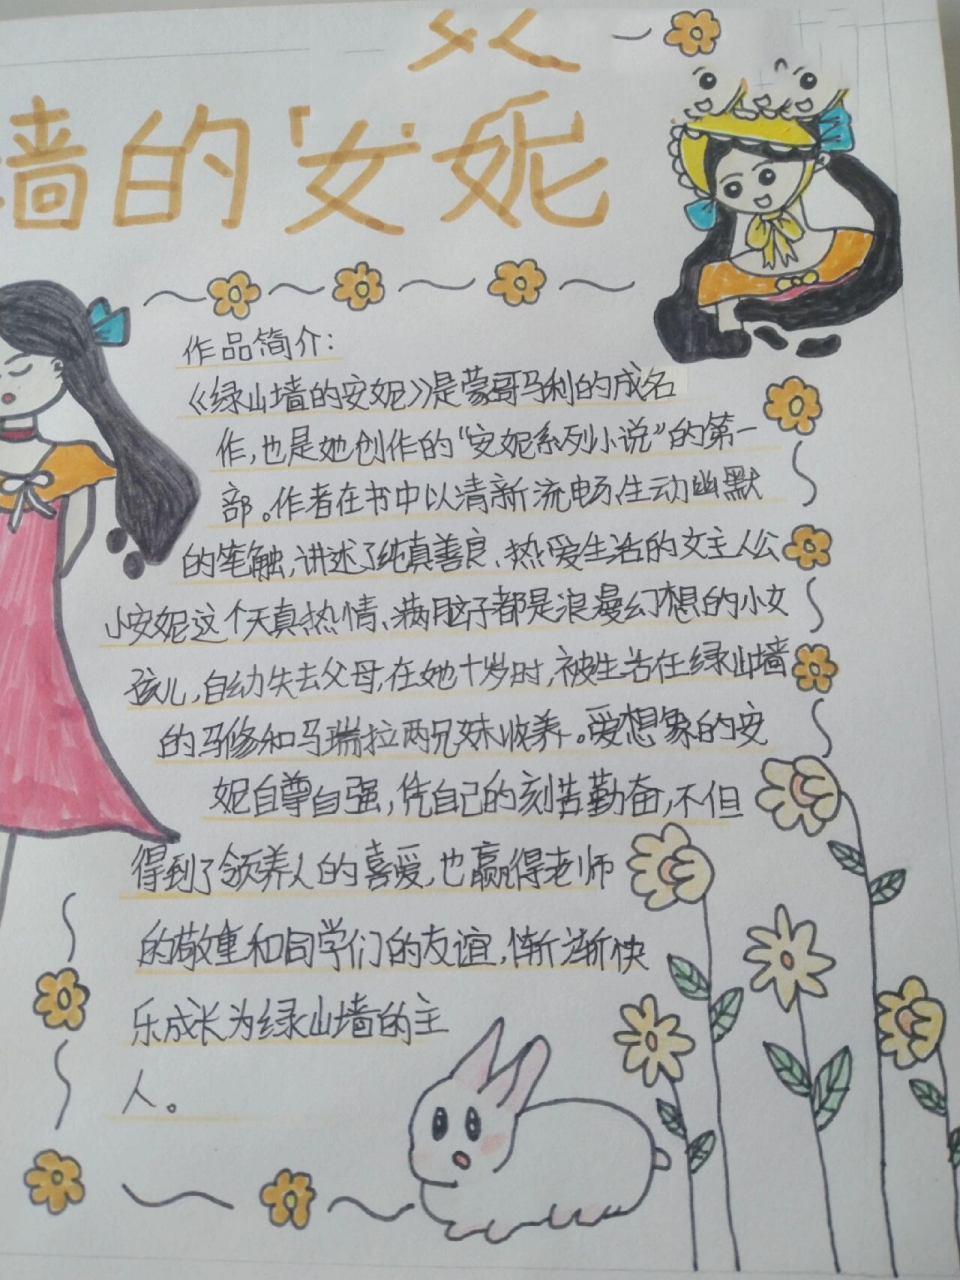 墙的安妮
作品简介：
《绿山墙的安妮》是蒙哥马利的成名
作，也是她创作的“安妮系列小说”的第一
部。作者在书中以清新流畅、生动幽默
的笔触，讲述了纯真善良、热爱生活的女主人公
小安妮这个天真热情、满脑子都是浪漫幻想的小女
孩儿，自幼失去父母，在她十岁时，被生活在绿山墙
的马修和马瑞拉两兄妹收养。爱想象的安
妮自尊自强，凭自己的刻苦勤奋，不但
得到了领养人的喜爱，也赢得老师
的敬重和同学们的友谊，渐渐快
乐成长为绿山墙的主
人。